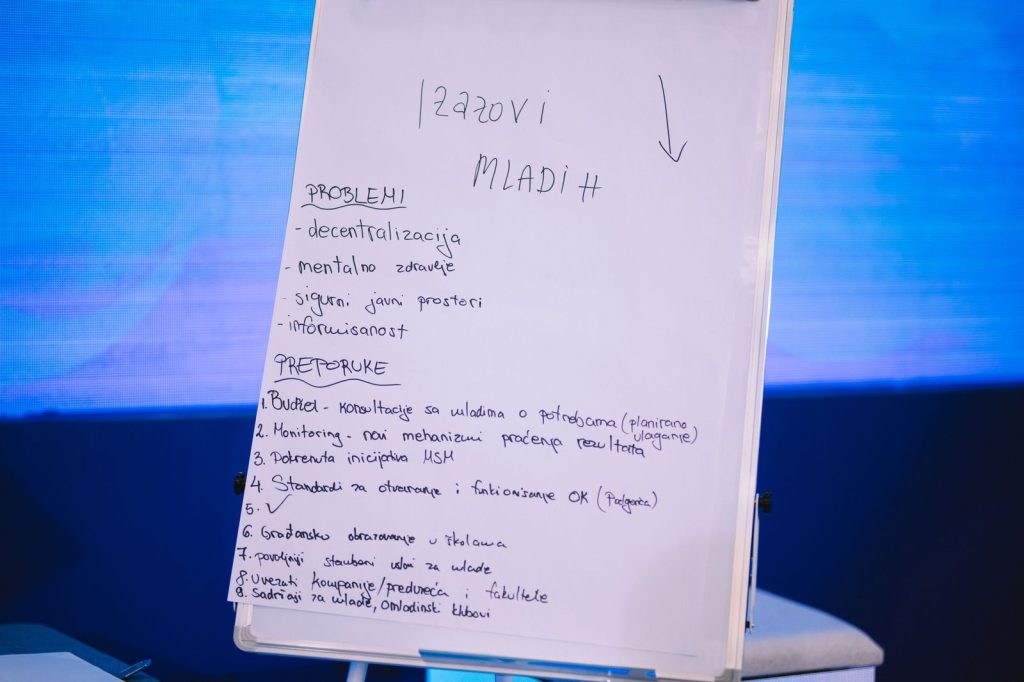 Izazovi
MLADIH
PROBLEMI
- decentralizacija
- mentalno zdravlje
- sigurni javni prostori
- informisanost
PREPORUKE
1. Budžet - konsultacije sa mladima o potrebama (planirano ulaganje)
2. Monitoring - novi mehanizmi praćenja rezultata
3. Pokrenuta inicijativa MSM
4. Standardi za otvaranje i funkionisanje OK (Podgorica)
5. ✓
6. Građansko obrazovanje u školama
7. povoljniji stambeni uslovi za mlade
8. Uvezati kompanije/preduzeća i fakultete
9. Sadržaji za mlade, Omladinski klubovi